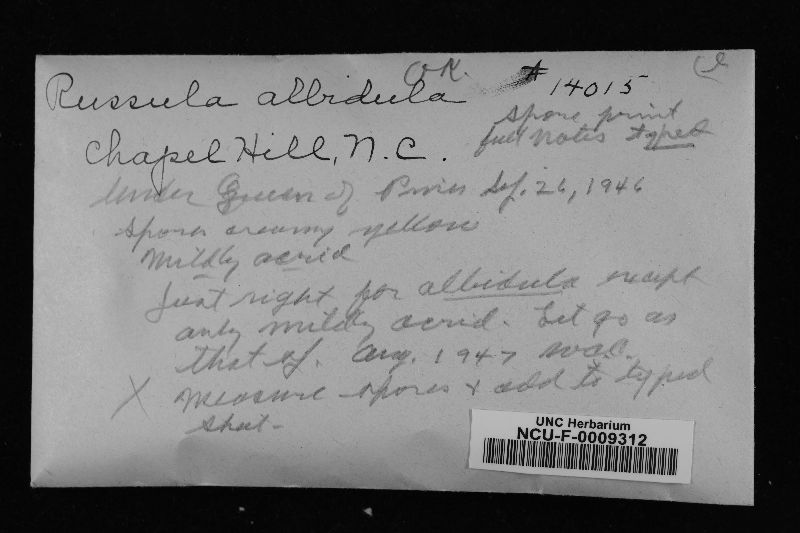 Russula albidula O.K. #14015
spore print
full notes typed
Chapel Hill, N.C.
Under Queen of Pines Sep. 26, 1946
spores creamy yellow
mildly acrid
Just right for albidula except
only mildly acrid. Let go as
that sp. Aug. 1947 W.C.C.
X measure spores + add to typed
sheet -
UNC Herbarium
NCU-F-0009312